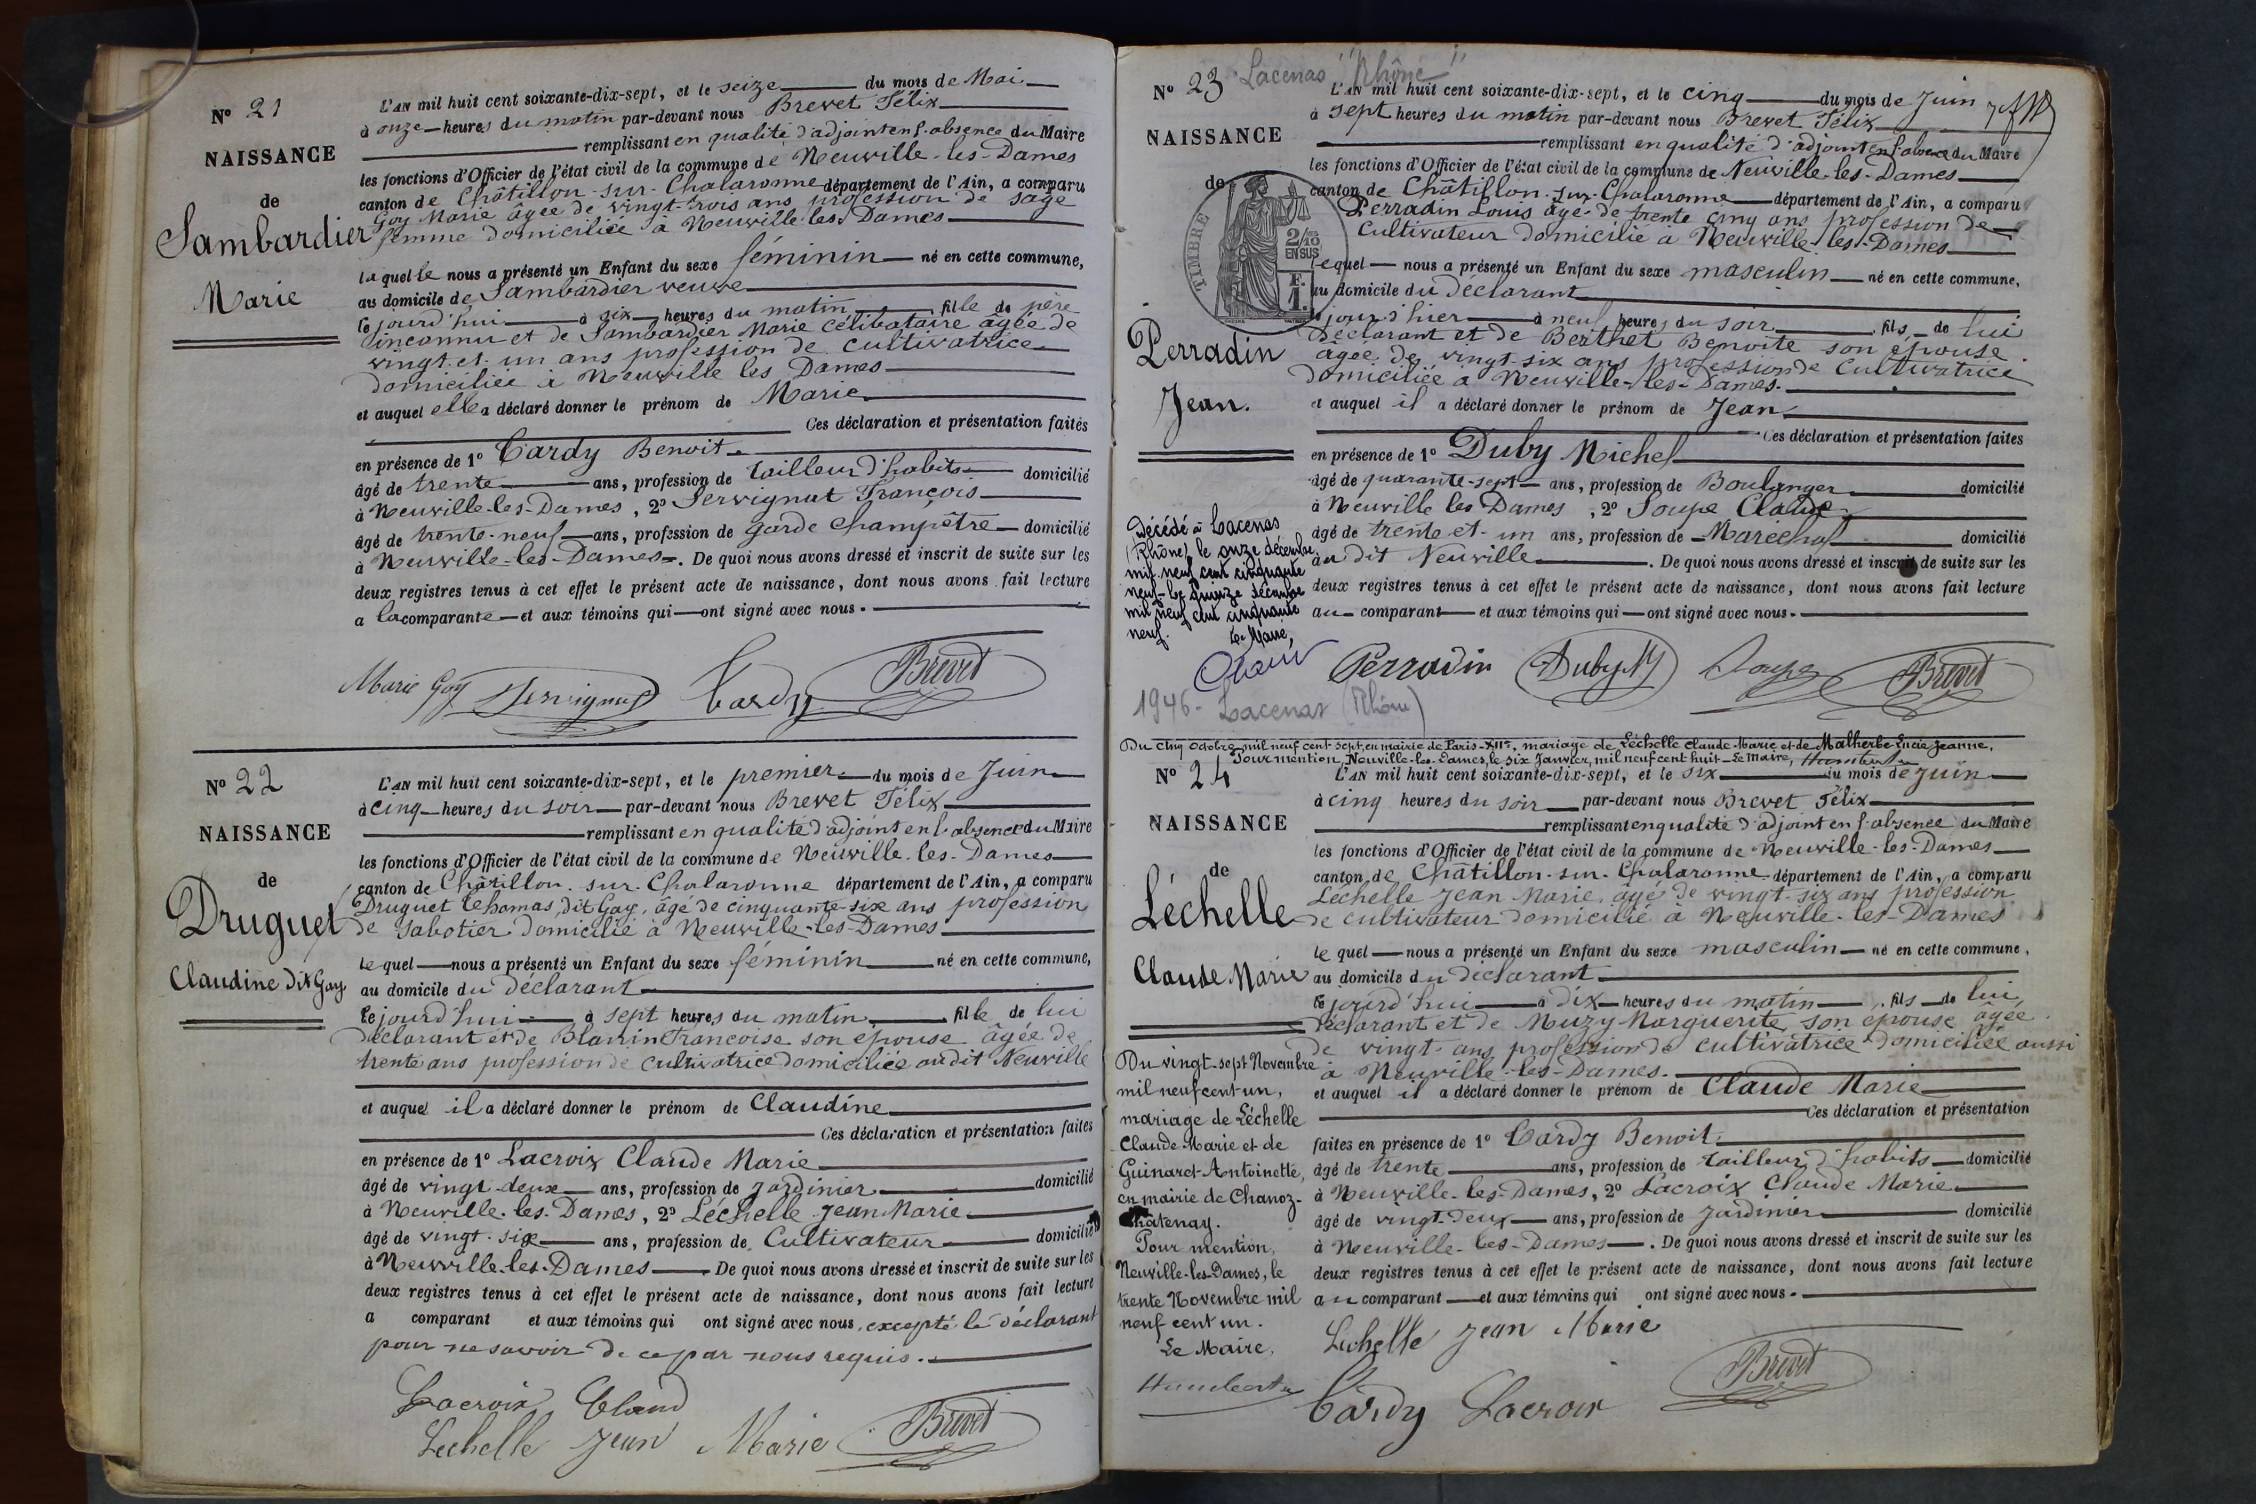 N° 21
NAISSANCE
de
Sambardier
Marie
L'AN mil huit cent soixante-dix-sept, et le seize du mois de Mai
à onze heures du matin par-devant nous Brevet Félix
remplissant en qualité d'adjoint en l'absence du Maire
les fonctions d'Officier de l'état civil de la commune de Neuville-les-Dames
canton de Châtillon-sur-Chalaronne département de l'Ain, a comparu
Goy Marie âgée de vingt-trois ans profession de sage
femme domiciliée à Neuville-les-Dames
laquelle nous a présenté un Enfant du sexe féminin né en cette commune,
au domicile de Sambardier veuve
le jourd'hui à six heures du matin fille de père
inconnu et de Sambardier Marie célibataire âgée de
vingt-et-un ans profession de cultivatrice
domiciliée à Neuville les Dames
et auquel elle a déclaré donner le prénom de Marie
Ces déclaration et présentation faites
en présence de 1° Cardy Benoit
âgé de trente ans, profession de tailleur d'habits domicilié
à Neuville-les-Dames, 2° Servignat François
âgé de trente-neuf ans, profession de garde champêtre domicilié
à Neuville-les-Dames. De quoi nous avons dressé et inscrit de suite sur les
deux registres tenus à cet effet le présent acte de naissance, dont nous avons fait lecture
a la comparante et aux témoins qui ont signé avec nous.
Marie Goy Servignat Cardy Brevet
N° 22
NAISSANCE
de
Druguet
Claudine dit Gay
L'AN mil huit cent soixante-dix-sept, et le premier du mois de Juin
à cinq heures du soir par-devant nous Brevet Félix
remplissant en qualité d'adjoint en l'absence du Maire
les fonctions d'Officier de l'état civil de la commune de Neuville-les-Dames
canton de Châtillon-sur-Chalaronne département de l'Ain, a comparu
Druguet Thomas, dit Gay, âgé de cinquante-six ans profession
de sabotier domicilié à Neuville-les-Dames
lequel nous a présenté un Enfant du sexe féminin né en cette commune,
au domicile du déclarant
le jourd'hui à sept heures du matin fille de lui
déclarant et de Blanin Françoise son épouse âgée de
trente ans profession de cultivatrice domiciliée audit Neuville
et auquel il a déclaré donner le prénom de Claudine
Ces déclaration et présentation faites
en présence de 1° Lacroix Claude Marie
âgé de vingt-deux ans, profession de jardinier domicilié
à Neuville-les-Dames, 2° Léchelle Jean Marie
âgé de vingt-six ans, profession de Cultivateur domicilié
à Neuville-les-Dames De quoi nous avons dressé et inscrit de suite sur les
deux registres tenus à cet effet le présent acte de naissance, dont nous avons fait lecture
a comparant et aux témoins qui ont signé avec nous, excepté le déclarant
pour ne savoir de ce par nous requis.
Lacroix Claud
Léchelle Jean Marie Brevet
Lacenas "Rhône"
N° 23
NAISSANCE
de
TIMBRE
2/10 EN SUS
Perradin
Jean.
L'AN mil huit cent soixante-dix-sept, et le cinq du mois de Juin
à sept heures du matin par-devant nous Brevet Félix
remplissant en qualité d'adjoint en l'absence du Maire
les fonctions d'Officier de l'état civil de la commune de Neuville-les-Dames
canton de Châtillon-sur-Chalaronne département de l'Ain, a comparu
Perradin Louis âgé de trente cinq ans profession de
cultivateur domicilié à Neuville-les-Dames
lequel nous a présenté un Enfant du sexe masculin né en cette commune,
au domicile du déclarant
le jour d'hier à neuf heures du soir fils de lui
Déclarant et de Berthet Benoite son épouse
âgée de vingt-six ans profession de Cultivatrice
domiciliée à Neuville-les-Dames.
et auquel il a déclaré donner le prénom de Jean
Ces déclaration et présentation faites
en présence de 1° Duby Michel
âgé de quarante-sept ans, profession de Boulanger domicilié
à Neuville les Dames, 2° Soupe Claude
âgé de trente et un ans, profession de Maréchal domicilié
au dit Neuville. De quoi nous avons dressé et inscrit de suite sur les
deux registres tenus à cet effet le présent acte de naissance, dont nous avons fait lecture
au comparant et aux témoins qui ont signé avec nous.
Décédé à Lacenas
(Rhône) le onze décembre
mil neuf cent cinquante
neuf. Le quinze décembre
mil neuf cent cinquante
neuf. Le Maire,
Perradin Duby M Soupe Brevet
1946 - Lacenas (Rhône)
Du cinq octobre mil neuf cent sept, en mairie de Paris-XIIe, mariage de Léchelle Claude-Marie et de Malherbe Lucie Jeanne.
Pour mention, Neuville-les-Dames, le six Janvier, mil neuf cent huit. Le Maire, Humbert
N° 24
NAISSANCE
de
Léchelle
Claude Marie
L'AN mil huit cent soixante-dix-sept, et le six du mois de Juin
à cinq heures du soir par-devant nous Brevet Félix
remplissant en qualité d'adjoint en l'absence du Maire
les fonctions d'Officier de l'état civil de la commune de Neuville-les-Dames
canton de Châtillon-sur-Chalaronne département de l'Ain, a comparu
Léchelle Jean Marie, âgé de vingt-six ans profession
de cultivateur domicilié à Neuville-les-Dames
lequel nous a présenté un Enfant du sexe masculin né en cette commune,
au domicile du déclarant
le jourd'hui à dix heures du matin fils de lui
déclarant et de Muzy Marguerite, son épouse âgée
de vingt ans profession de cultivatrice domiciliée aussi
à Neuville-les-Dames.
et auquel il a déclaré donner le prénom de Claude Marie
Ces déclaration et présentation
faites en présence de 1° Cardy Benoit
âgé de trente ans, profession de tailleur d'habits domicilié
à Neuville-les-Dames, 2° Lacroix Claude Marie
âgé de vingt-deux ans, profession de jardinier domicilié
à Neuville-les-Dames. De quoi nous avons dressé et inscrit de suite sur les
deux registres tenus à cet effet le présent acte de naissance, dont nous avons fait lecture
au comparant et aux témoins qui ont signé avec nous.
Du vingt-sept Novembre
mil neuf cent un,
mariage de Léchelle
Claude-Marie et de
Guinaret Antoinette,
en mairie de Chanoz-
Châtenay.
Pour mention,
Neuville-les-Dames, le
trente Novembre mil
neuf cent un.
Le Maire,
Humbert
Léchelle Jean Marie
Cardy Lacroix Brevet